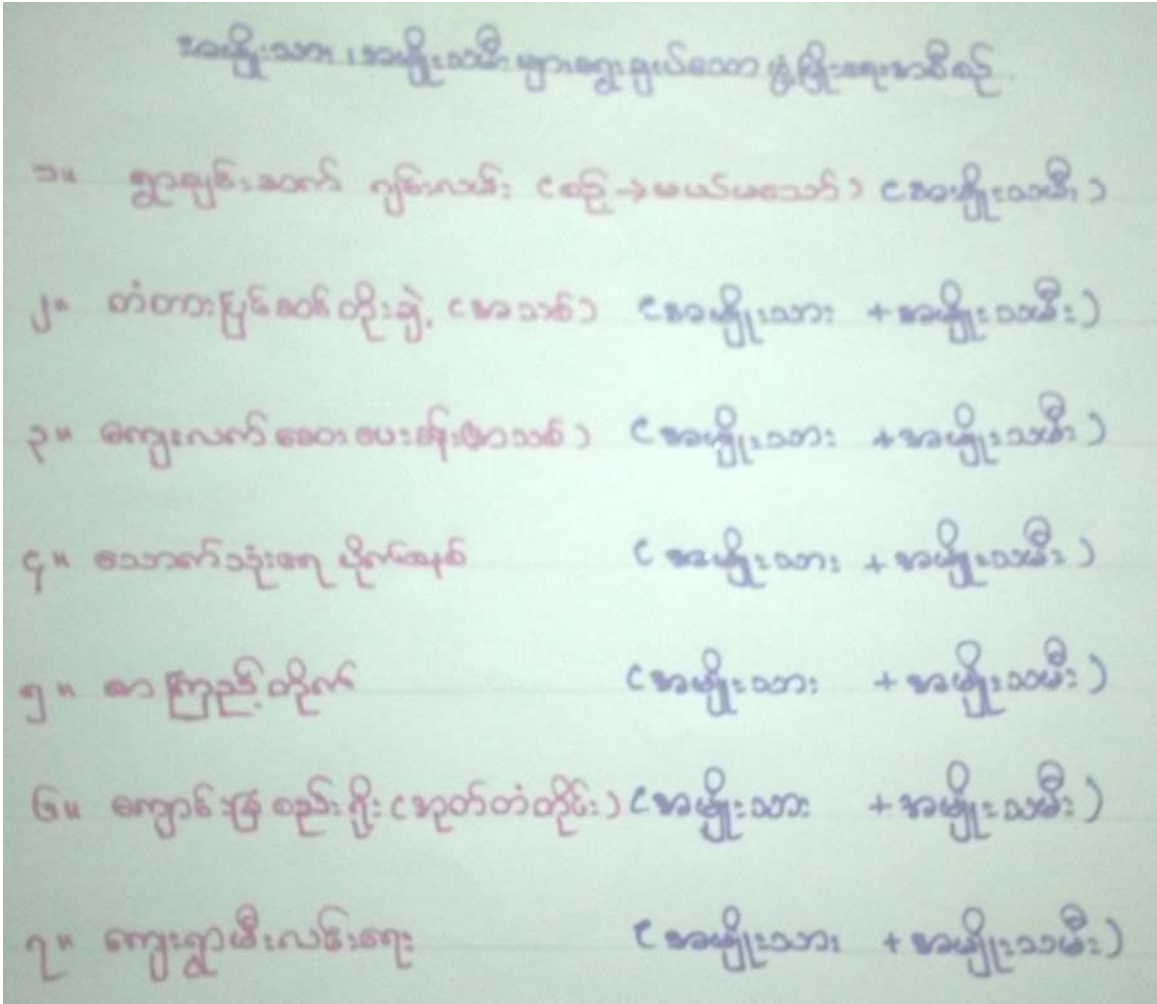 အမျိုးသား၊ အမျိုးသမီးများရွေးချယ်သော ဖွံ့ဖြိုးရေးအစီစဉ်
၁။ ရွာချင်းဆက် ကျင်းလမ်း (စဉ့် → မယ်မသော်) (အမျိုးသမီး)
၂။ တံတားပြုပြင် တိုးချဲ့ (အသစ်) (အမျိုးသား + အမျိုးသမီး)
၃။ ကျေးလက်ဆေးပေးခန်း (အသစ်) (အမျိုးသား + အမျိုးသမီး)
၄။ သောက်သုံးရေ ပိုက် (အမျိုးသား + အမျိုးသမီး)
၅။ စာကြည့်တိုက် (အမျိုးသား + အမျိုးသမီး)
၆။ ကျောင်းခြံစည်းရိုး (အုတ်တံတိုင်း) (အမျိုးသား + အမျိုးသမီး)
၇။ ကျေးရွာမီးလင်းရေး (အမျိုးသား + အမျိုးသမီး)